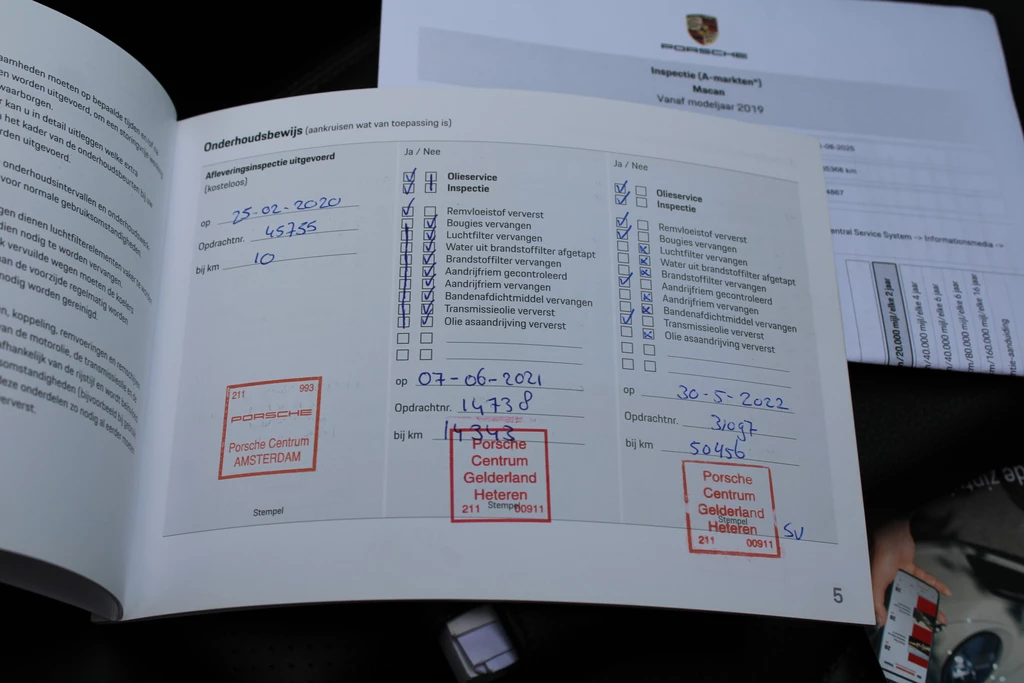 amheden moeten op bepaalde tijden en/of
en worden uitgevoerd, om een storingsvrije
waarborgen.
kan u in detail uitleggen welke extra
het kader van de onderhoudsbeurten bij uw
den uitgevoerd.
onderhoudsintervallen en onderhoudswerk
voor normale gebruiksomstandigheden.
gen dienen luchtfilterelementen vaker te
dien nodig te worden vervangen.
k vervuilde wegen moeten de koelers
an de voorzijde regelmatig worden
nodig worden gereinigd.
n, koppeling, remvoeringen en remschijven
van de motorolie, de transmissieolie en de
afhankelijk van de rijstijl en wordt beïnvloed
omstandigheden (bijvoorbeeld bij gebruik
deze onderdelen zo nodig al eerder moeten
ververst.
PORSCHE
Inspectie (A-markten*)
Macan
Vanaf modeljaar 2019
-06-2025
5366 km
4667
entral Service System -> Informationsmedia ->
m/20.000 mijl/elke 2 jaar
m/40.000 mijl/elke 4 jaar
m/40.000 mijl/elke 6 jaar
m/80.000 mijl/elke 6 jaar
m/160.000 mijl/elke 16 jaar
Onderhoudsbewijs (aankruisen wat van toepassing is)
Afleveringsinspectie uitgevoerd
(kosteloos)
op 25-02-2020
Opdrachtnr. 45755
bij km 10
211 993
PORSCHE
Porsche Centrum
AMSTERDAM
Stempel
Ja / Nee
Olieservice
Inspectie
Remvloeistof ververst
Bougies vervangen
Luchtfilter vervangen
Water uit brandstoffilter afgetapt
Brandstoffilter vervangen
Aandrijfriem gecontroleerd
Aandrijfriem vervangen
Bandenafdichtmiddel vervangen
Transmissieolie ververst
Olie asaandrijving ververst
op 07-06-2021
Opdrachtnr. 14738
bij km 14343
Porsche
Centrum
Gelderland
Heteren
Stempel
211 00911
Ja / Nee
Olieservice
Inspectie
Remvloeistof ververst
Bougies vervangen
Luchtfilter vervangen
Water uit brandstoffilter afgetapt
Brandstoffilter vervangen
Aandrijfriem gecontroleerd
Aandrijfriem vervangen
Bandenafdichtmiddel vervangen
Transmissieolie ververst
Olie asaandrijving ververst
op 30-5-2022
Opdrachtnr. 31097
bij km 50456
Porsche
Centrum
Gelderland
Stempel
Heteren
211 00911
SV
5